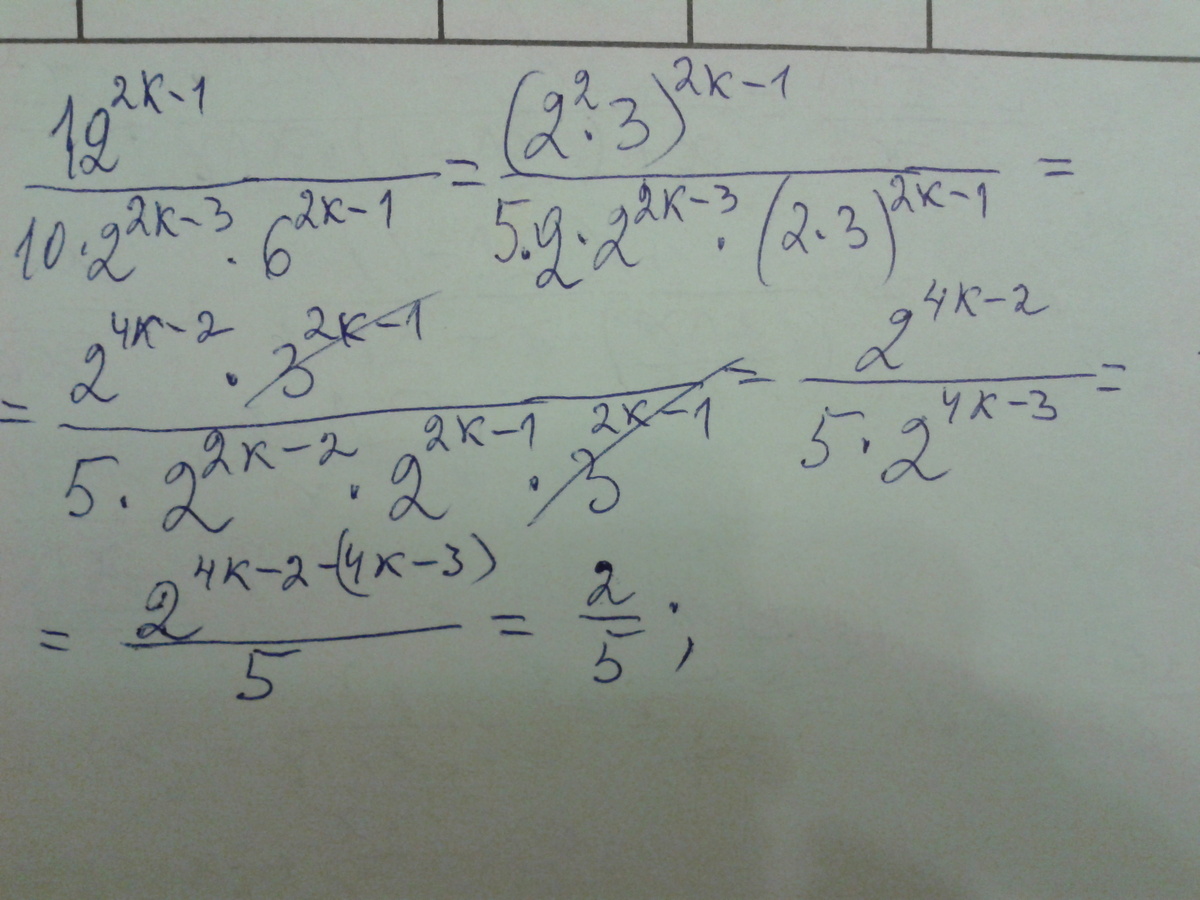 12^{2k-1} / (10·2^{2k-3}·6^{2k-1}) = (2^2·3)^{2k-1} / (5·2·2^{2k-3}·(2·3)^{2k-1}) =
= 2^{4k-2}·3^{2k-1} / (5·2^{2k-2}·2^{2k-1}·3^{2k-1}) = 2^{4k-2} / (5·2^{4k-3}) =
= 2^{4k-2-(4k-3)} / 5 = 2/5;